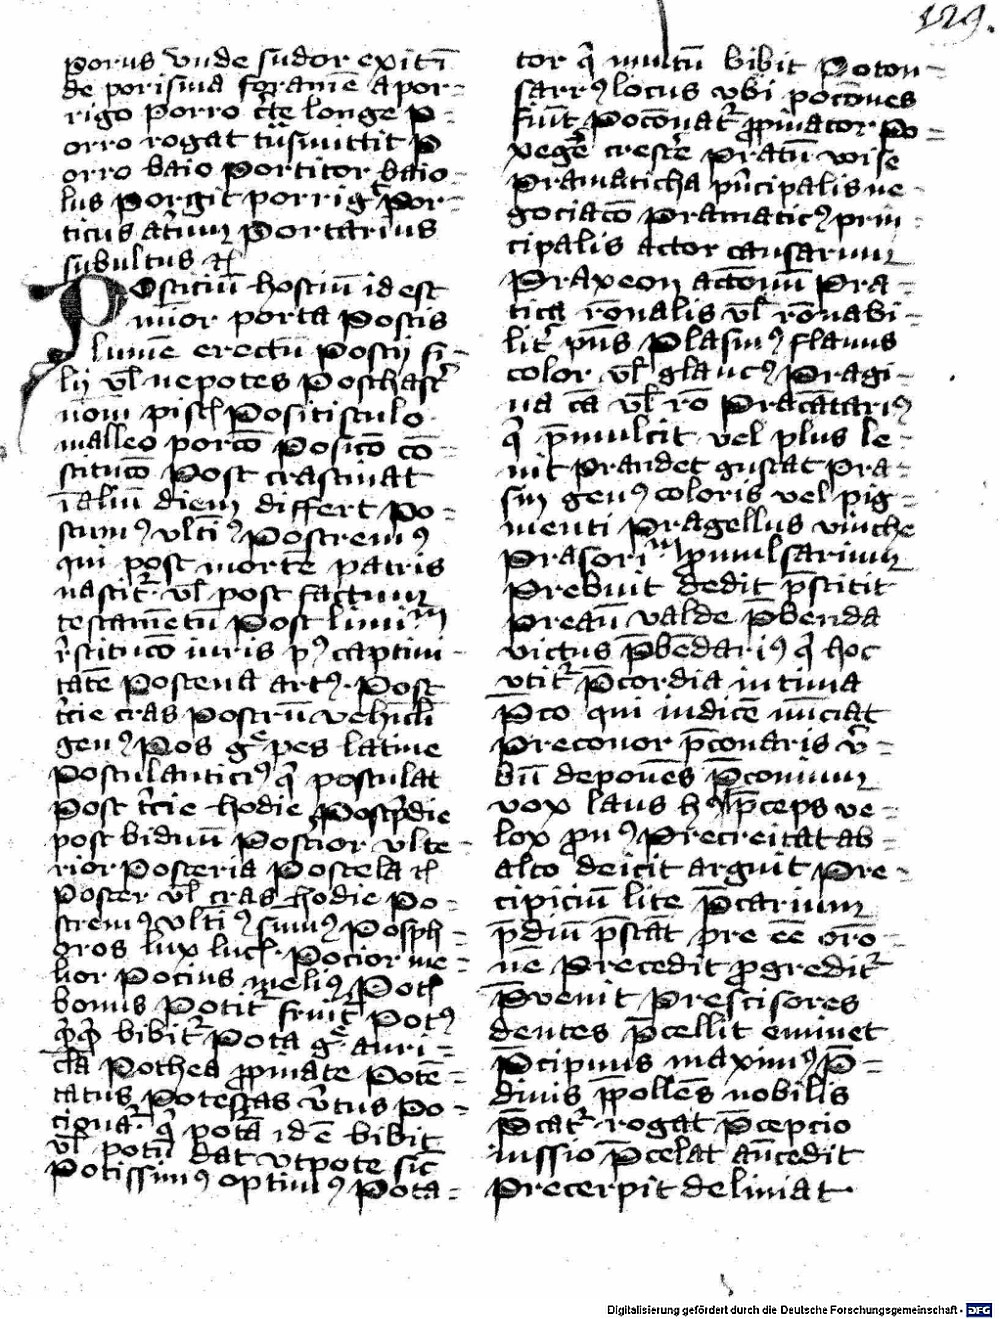 129.
porus vnde sudor exit ı̄
de porisma foramē a por-
rigo porro c̄te longe P-
orro rogat mittit P
orro baio Portitor baio-
lus Porgit porrigit Por-
ticus atrium Portarius
subultus
Posticiū hostiū id est
minor porta Postis
lumē erectū Postij fi-
lij vl̄ nepotes
nōm pisc̄ Positisculo
malleo porcō Posicō cō-
stitucō Post crastinat
ī aliū diem differt Po-
stumꝰ vltīꝰ Postremꝰ
qui post mortē patris
nascit᷑ vl̄ post factum
testamētū Post limi
r̄stitucō iuris pꝰ captiui-
tatē Postena artꝰ Post
t̄cie cras Postrū vehicl̄i
genꝰ Pos ge pes latine
Postulanticiꝰ q̄ postulat
Post t̄cie hodie Postp̄die
post biduū Posc̄ior vlte-
rior Posteria Postela
Poster vl̄ cras hodie Po-
stremꝰ vltīꝰ simꝰ Posph-
oros lux luc̄ Pocior me-
lior Pocius meliꝰ Pot
bonus Potit᷑ fruit᷑ Potꝰ
bibit᷑ Pota ge auri-
cl̄a Pothea ꝓpinate Pote-
tatus Potestas v̄tus Po-
cionat᷑ q̄ potā id ē bibit
vl̄ potū dat vtpote sic̄
Potissimꝰ optimꝰ Pota-
tor q̄ multū bibit Poton-
sarrꝰ locus vbi pocōnes
fiūt Pocōnat᷑ ꝓpinator Po-
vegē crescē Pratū voise
Pramaticha pn̄cipalis ne-
gociacō Pramaticꝰ prin-
cipalis actor causarum
Praxeon actōnū Pra-
tica rōnalis vl̄ rōnabi-
lit᷑ pn̄s Plasinꝰ flauus
color vl̄ glaucꝰ Pragi-
na cā vl̄ rō Pracātariꝰ
q̄ p̄mulcit vel plus le-
nit Prandet gustat Pra-
sin genꝰ coloris vel pig-
menti Pragellus vinche
Prasoriū ꝓmulsarium
Prebuit dedit p̄stitit
Preaū valde P̄benda
victus P̄bēdariꝰ q̄ hoc
vtit᷑ P̄cordia intima
P̄co qui iudicē nūciat
Preconor p̄conaris v̄-
bū deponēs P̄conium
vox laus P̄ceps ve-
lox pnꝰ Precreitat ab
alto deicit arguit Pre-
cipiciū lite P̄carium
p̄diū p̄stāt pre eē orō-
ne Precedit ꝓgredit᷑
P̄uenit Prescisores
dentes P̄cellit eminet
P̄cipuus maximꝰ P̄-
diuis p̄pollēs nobilis
P̄cat᷑ rogat P̄cepcio
iussio P̄celat an̄cedit
Precerpit deliniat
Digitalisierung gefördert durch die Deutsche Forschungsgemeinschaft - DFG